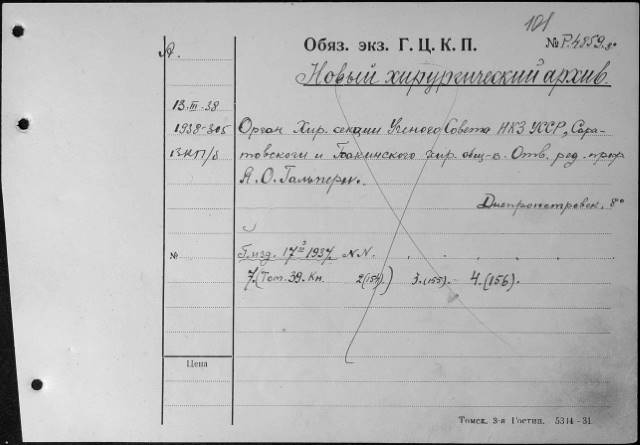 101
Обяз. экз. Г. Ц. К. П.
№ Р.4859.8°
А.
Новый хирургический архив.
13.III.38
1938-305
13НП/8
Орган Хир. секции Ученого Совета НКЗ УССР, Сара-
товского и Бакинского хир. общ-в. Отв. ред. проф
Я. О. Гальперн.
Днепропетровск. 8°
№
Г. изд. 17й 1937. NN.
7. (Том. 39. Кн. 2 (154)) 3. (155). - 4. (156).
Цена
Томск. 3-я Гостип. 5314-31